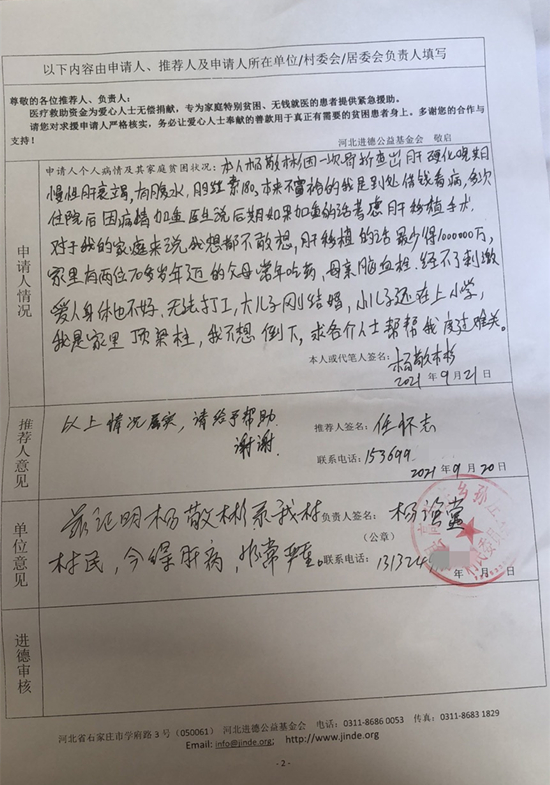 以下内容由申请人、推荐人及申请人所在单位/村委会/居委会负责人填写
尊敬的各位推荐人、负责人：
医疗救助资金为爱心人士无偿捐献，专为家庭特别贫困、无钱就医的患者提供紧急援助。
请您对求援申请人严格核实，务必让爱心人士奉献的善款用于真正有需要的贫困患者身上。多谢您的合作与
支持！
河北进德公益基金会 敬启
申请人情况
申请人个人病情及其家庭贫困状况：本人杨敬彬因一次骨折查出肝硬化晚期
慢性肝衰竭，有腹水，胆红素180，本来不富裕的我是到处借钱看病，多次
住院后因病情加重医生说后期如果加重的话考虑肝移植手术.
对于我的家庭来说我想都不敢想，肝移植的话最少得1000000万，
家里有两位70多岁年迈的父母常年吃药，母亲脑血栓.经不了刺激
爱人身体也不好.无法打工，大儿子刚结婚，小儿子还在上小学，
我是家里顶梁柱，我不想倒下，求各介人士帮帮我度过难关。
本人或代笔人签名：杨敬彬
2021年9月21日
推荐人意见
以上情况属实，请给予帮助.
谢谢
推荐人签名：任怀志
联系电话：153699
2021年9月20日
单位意见
兹证明杨敬彬系我村
村民，今得肝病，非常严重。
负责人签名：杨
（公章）
联系电话：131324
年 月 日
进德审核
河北省石家庄市学府路3号（050061） 河北进德公益基金会 电话：0311-8686 0053 传真：0311-8683 1829
Email: info@jinde.org; http://www.jinde.org
- 2 -